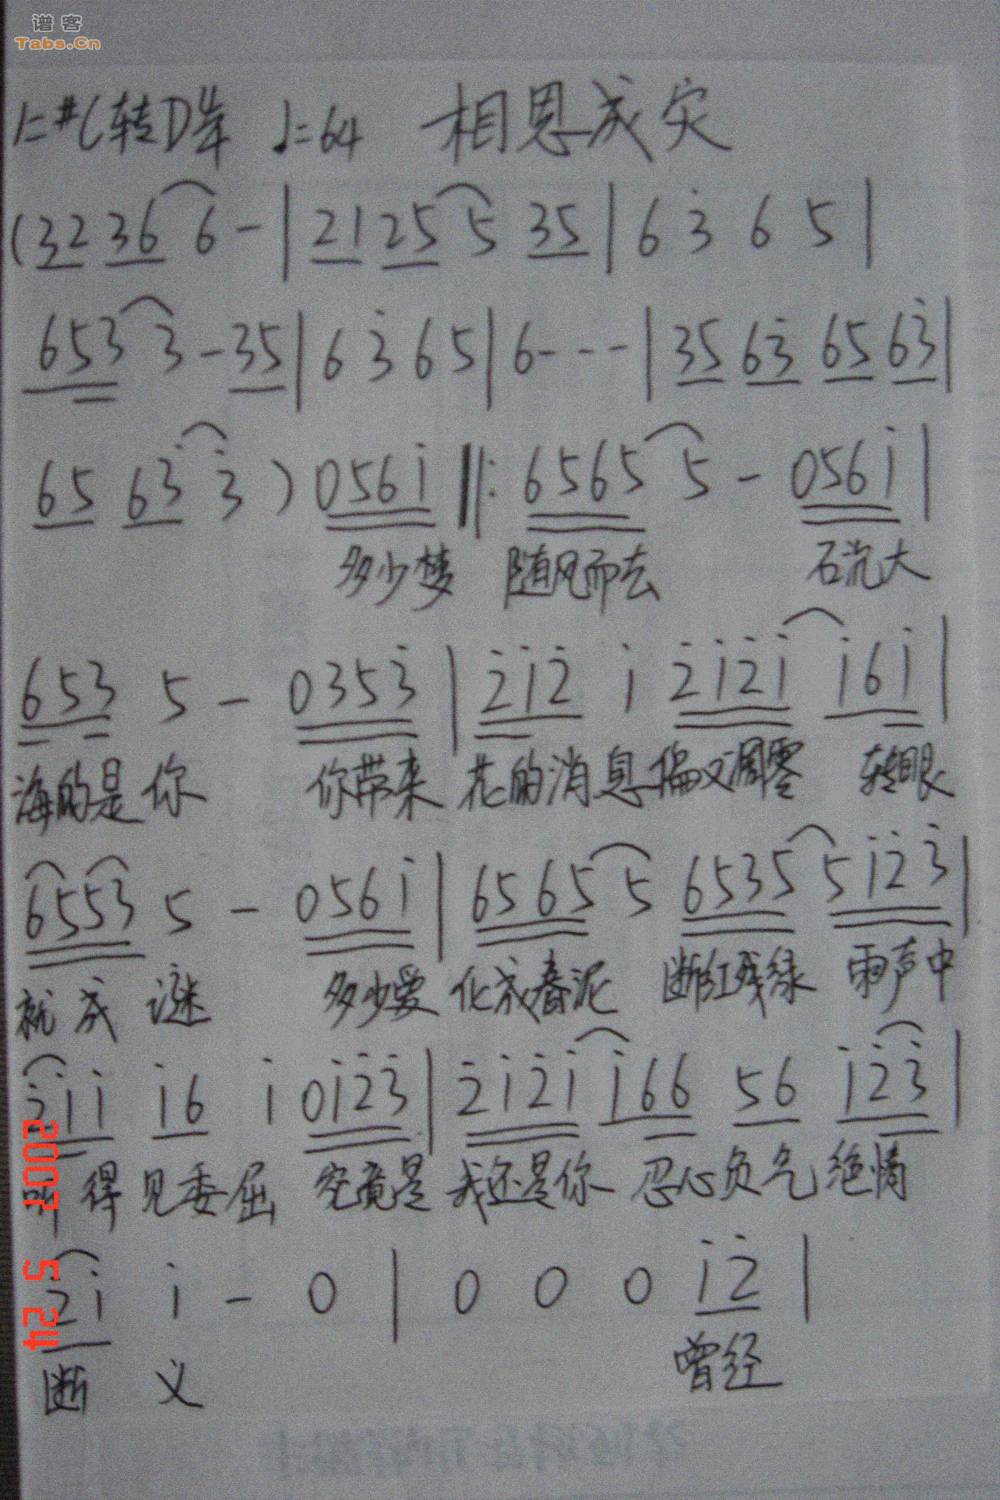 谱客
Tabs.Cn
1=#C转D 4/4 ♩=64 相思成灾
(32 36 6 - | 21 25 5 35 | 6 3̇ 6 5 |
653 3 - 35 | 6 3̇ 6 5 | 6 - - - | 35 63̇ 65 63̇ |
65 63̇ 3̇ ) 0561̇ ‖: 6565 5 - 0561̇ |
多少梦 随风而去 石沉大
653 5 - 0353̇ | 2̇1̇2̇ 1̇ 2̇1̇2̇1̇ 1̇61̇ |
海的是你 你带来 花的消息 偏又凋零 转眼
6553 5 - 0561̇ | 6565 5 6535 51̇2̇3̇ |
就成谜 多少爱 化成春泥 断红残绿 雨声中
2̇1̇1̇ 1̇6 1̇ 01̇2̇3̇ | 2̇1̇2̇1̇ 1̇66 56 1̇2̇3̇ |
听得见委屈 究竟是 我还是你 忍心负气 绝情
2̇1̇ 1̇ - 0 | 0 0 0 1̇2̇ |
断义 曾经
2007 5 24